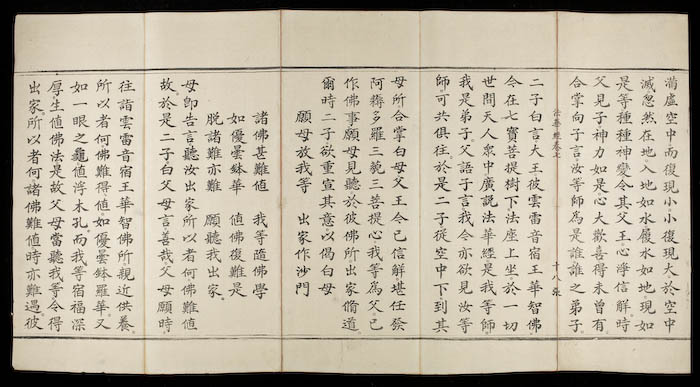 滿虛空中而復現小小復現大於空中
滅忽然在地入地如水履水如地現如
是等種種神變令其父王心淨信解時
父見子神力如是心大歡喜得未曾有
合掌向子言汝等師為是誰誰之弟子
法華經卷七 十八張
二子白言大王彼雲雷音宿王華智佛
今在七寶菩提樹下法座上坐於一切
世間天人衆中廣說法華經是我等師
我是弟子父語子言我今亦欲見汝等
師可共俱往於是二子從空中下到其
母所合掌白母父王今已信解堪任發
阿耨多羅三藐三菩提心我等為父已
作佛事願母見聽於彼佛所出家脩道
爾時二子欲重宣其意以偈白母
願母放我等 出家作沙門
諸佛甚難値 我等隨佛學
如優曇鉢華 値佛復難是
脫諸難亦難 願聽我出家
母即告言聽汝出家所以者何佛難値
故於是二子白父母言善哉父母願時
往詣雲雷音宿王華智佛所親近供養
所以者何佛難得値如優曇鉢羅華又
如一眼之龜値浮木孔而我等宿福深
厚生値佛法是故父母當聽我等令得
出家所以者何諸佛難値時亦難遇彼